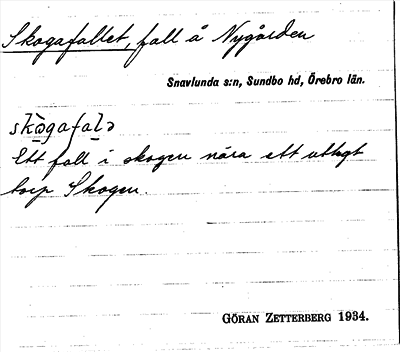 Skogafallet, fall å Nygården
Snavlunda s:n, Sundbo hd, Örebro län.
skògafalə
Ett fall i skogen nära ett utlagt
torp Skogen.
GÖRAN ZETTERBERG 1934.